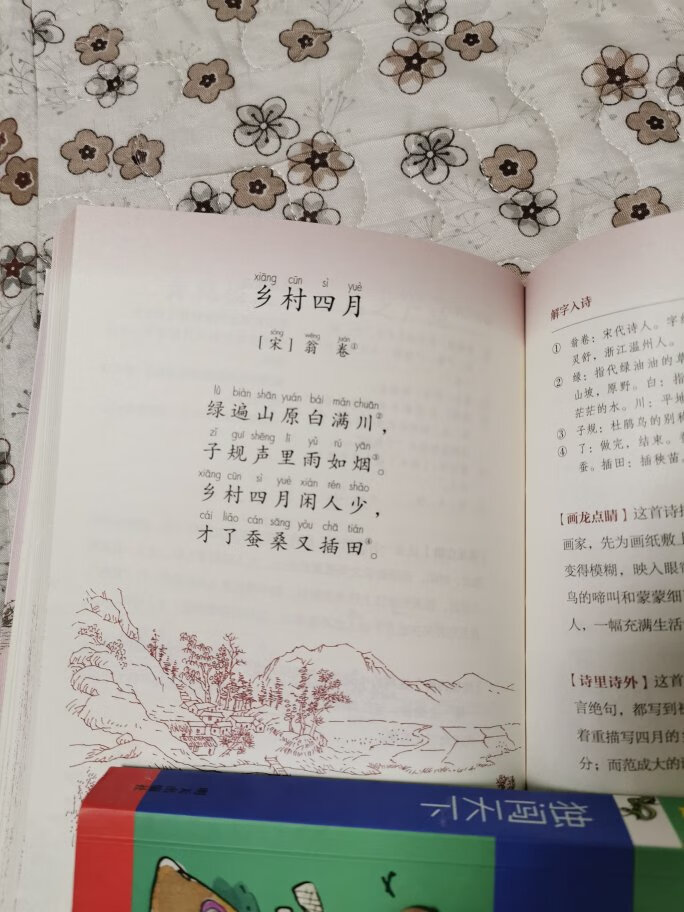 xiāng cūn sì yuè
乡村四月
sòng wēng juàn
[宋] 翁 卷①
lǜ biàn shān yuán bái mǎn chuān
绿遍山原白满川②,
zǐ guī shēng lǐ yǔ rú yān
子规声里雨如烟③。
xiāng cūn sì yuè xián rén shǎo
乡村四月闲人少,
cái liǎo cán sāng yòu chā tián
才了蚕桑又插田④。
解字入诗
① 翁卷:宋代诗人。字
灵舒,浙江温州人。
② 绿:指代绿油油的
山坡,原野。白:指
茫茫的水。川:平地
③ 子规:杜鹃鸟的别称
④ 了:做完,结束。
蚕。插田:插秧苗。
【画龙点睛】这首诗
画家,先为画纸敷上
变得模糊,映入眼
鸟的啼叫和蒙蒙细
人,一幅充满生活
【诗里诗外】这首
言绝句,都写到
着重描写四月的
分;而范成大的
明天出版社
独闯天下